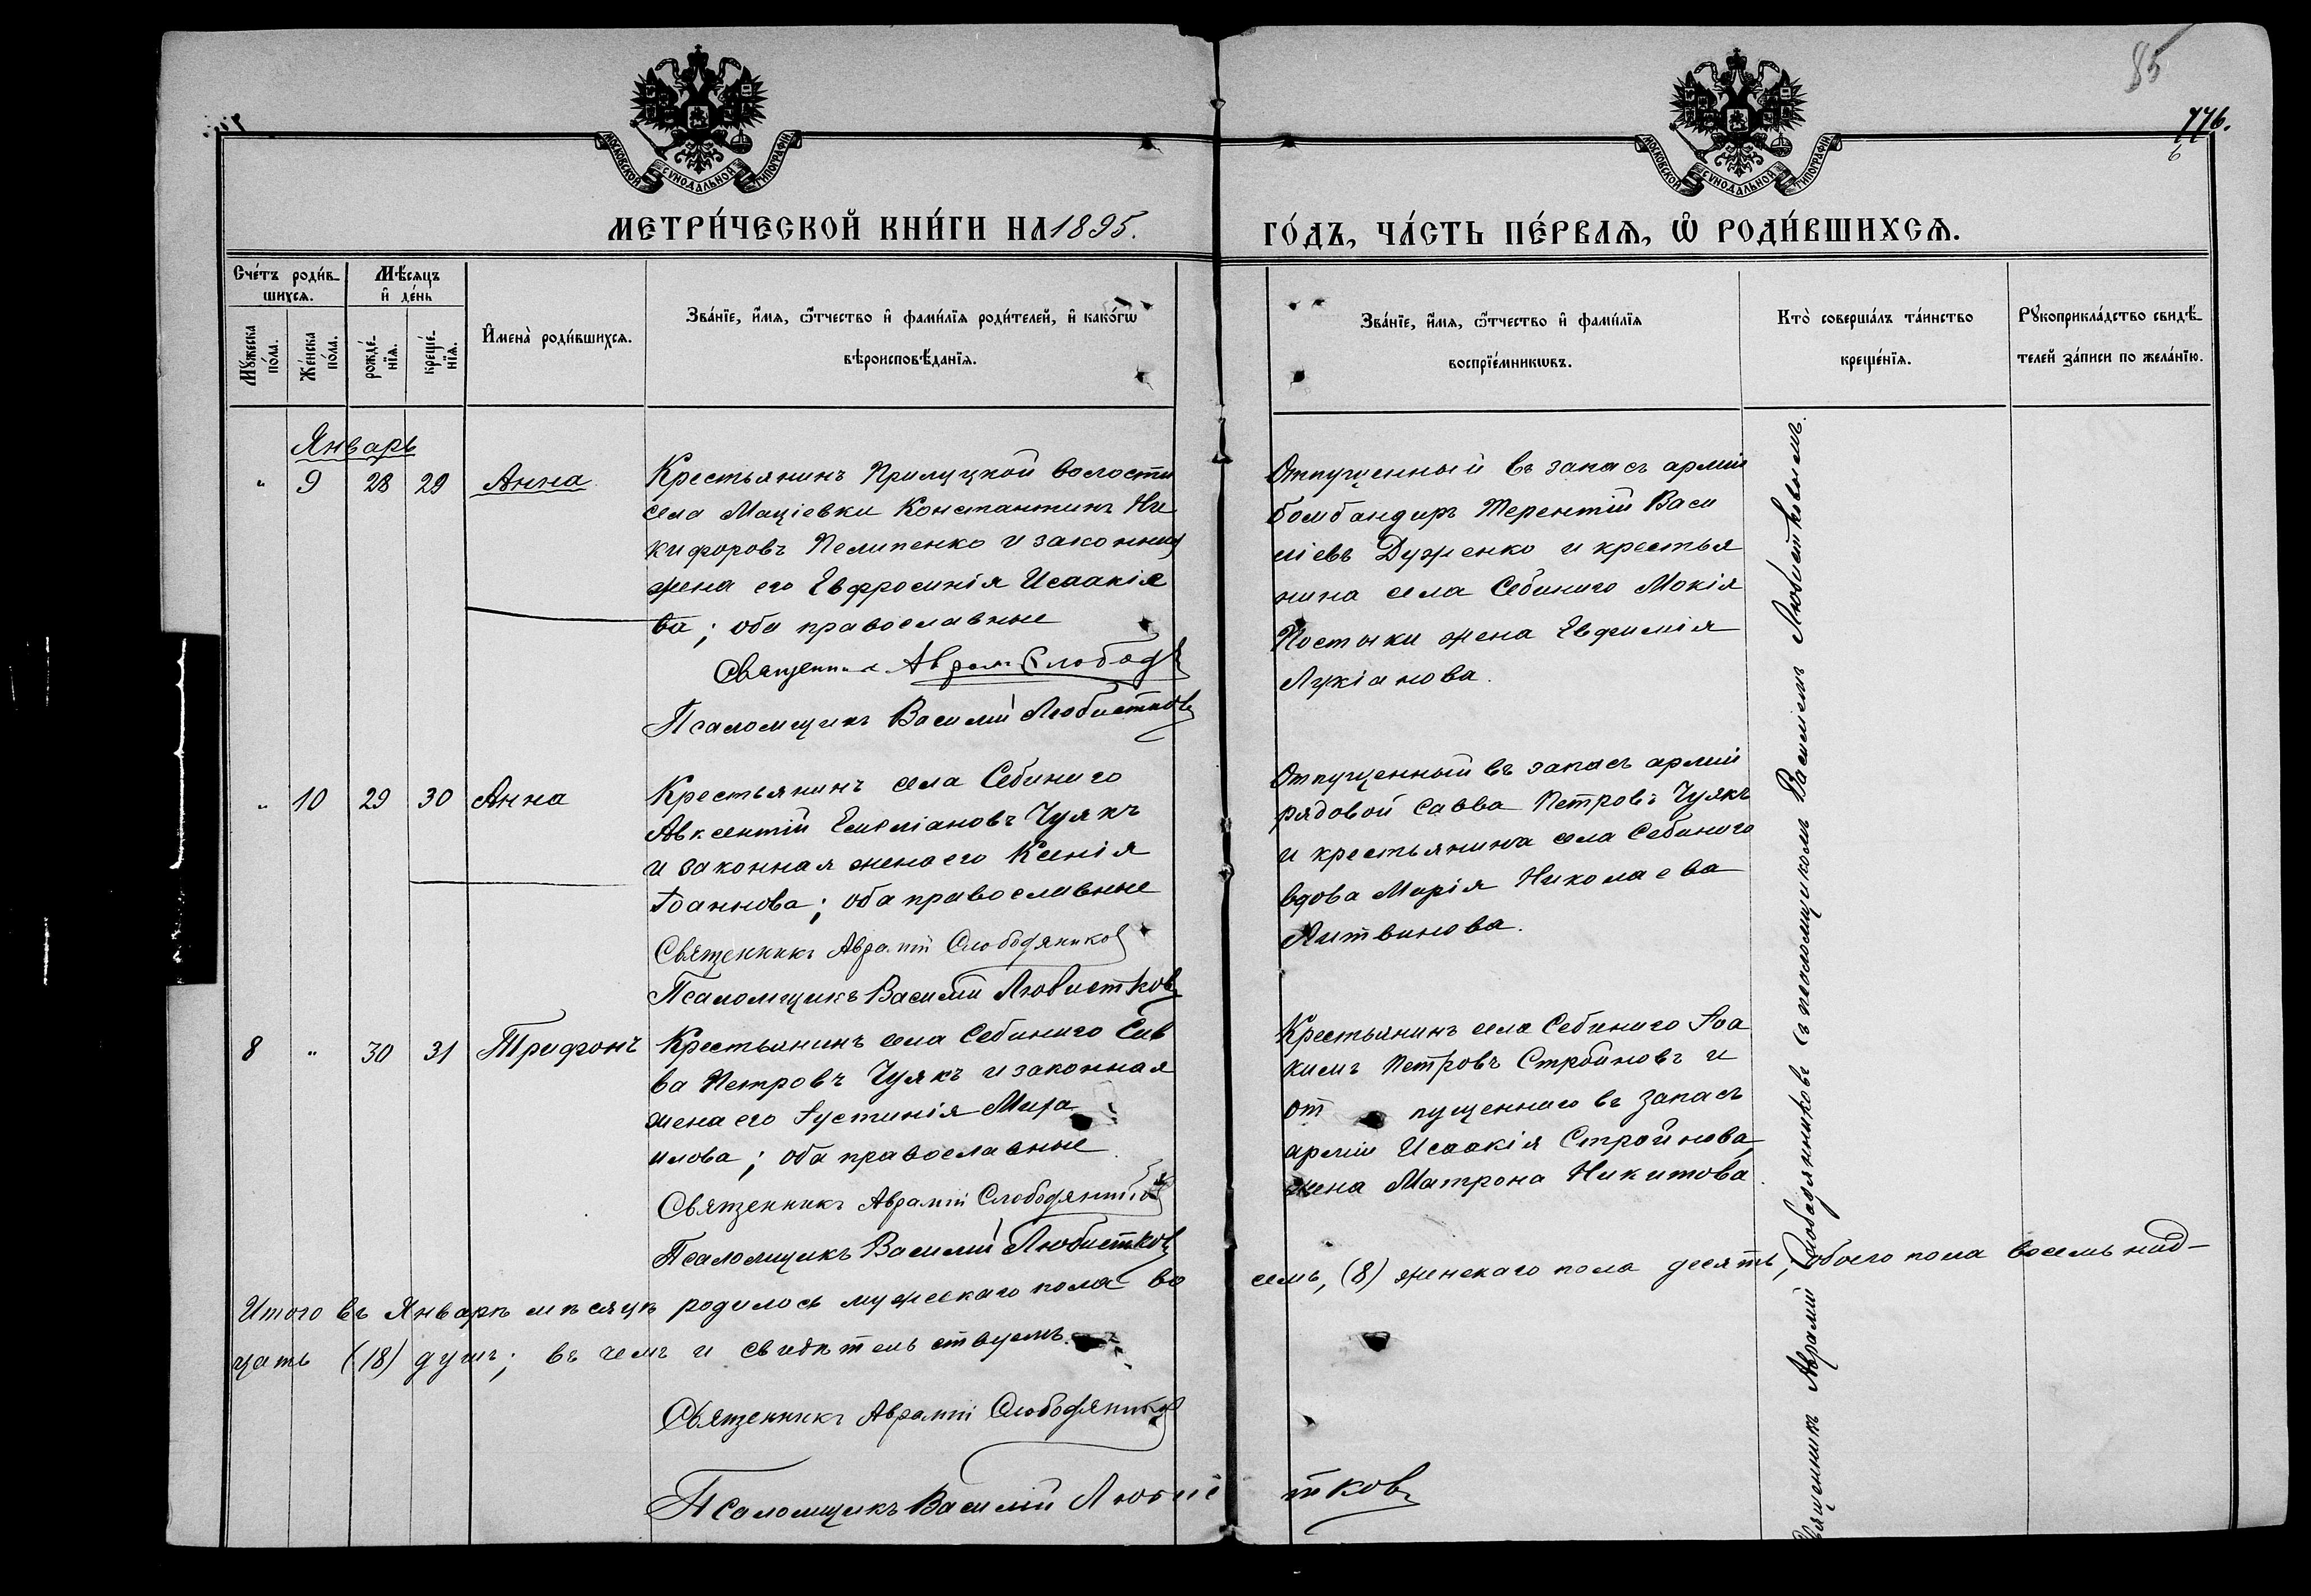 85
776.
6
МОСКОВСКОЙ СѴНОДАЛЬНОЙ ТИПОГРАФІИ
МОСКОВСКОЙ СѴНОДАЛЬНОЙ ТИПОГРАФІИ
МЕТРИ́ЧЕСКОЙ КНИ́ГИ НА 1895.
ГО́ДЪ, ЧА́СТЬ ПЕ́РВАѦ, Ѡ҆ РОДИ́ВШИХСѦ.
Счéтъ роди́в-
шихсѧ.
Мꙋ́жеска
по́ла.
Же́нска
по́ла.
Мѣ́сѧцъ
и҆ де́нь
рожде́-
нїѧ.
креще́-
нїѧ.
И҆мена̀ роди́вшихсѧ.
Зва́нїе, и҆́мѧ, ѻ҆́тчество и҆ фами́лїѧ роди́телей, и҆ како́гѡ
вѣроисповѣ́данїѧ.
Зва́нїе, и҆́мѧ, ѻ҆́тчество и҆ фами́лїѧ
воспрїе́мникѡвъ.
Кто̀ соверша́лъ та́инство
креще́нїѧ.
Рꙋкоприкла́дство свидѣ́-
телей за́писи по жела́нїю.
Январь
" 9 28 29 Анна
Крестьянинъ Прилуцкой волости
села Мацiевки Константинъ Ни
кифоровъ Пелипенко и законная
жена его Евфросинiя Исаакiе
ва; оба православные
Священникъ Аврам Слободя
Псаломщикъ Василiй Любистковъ
Отпущенный въ запасъ армiи
бомбандиръ Терентiй Васи
лiевъ Дуженко и крестья
нина села Себиного Мокiя
Постыки жена Евфимiя
Лукiанова.
" 10 29 30 Анна
Крестьянинъ села Себиного
Авксентiй Емелiановъ Чуякъ
и законная жена его Ксенiя
Iоаннова; оба православные
Священникъ Аврамiй Слободяниковъ
Псаломщикъ Василiй Любистковъ
Отпущенный въ запасъ армiи
рядовой Савва Петровъ Чуякъ
и крестьянина села Себиного
вдова Марiя Николаева
Литвинова.
8 " 30 31 Трифонъ
Крестьянинъ села Себиного Сав
ва Петровъ Чуякъ и законная
жена его Iустинiя Миха
илова; оба православные
Священникъ Аврамiй Слободяниковъ
Псаломщикъ Василiй Любистковъ
Крестьянинъ села Себиного Iоа
кимъ Петровъ Стройновъ и
от пущеннаго въ запасъ
армiи Исаакiя Стройнова,
жена Матрона Никитова
Священникъ Аврамiй Слободянниковъ съ псаломщикомъ Василiемъ Любистковымъ.
Итого въ Январѣ мѣсяцѣ родилось мужескаго пола во
семь, (8) женскаго пола десять, обоего пола восемьнад-
цать (18) душъ; въ чемъ и свидѣтельствуемъ.
Священникъ Аврамiй Слободяниковъ
Псаломщикъ Василiй Любис тковъ